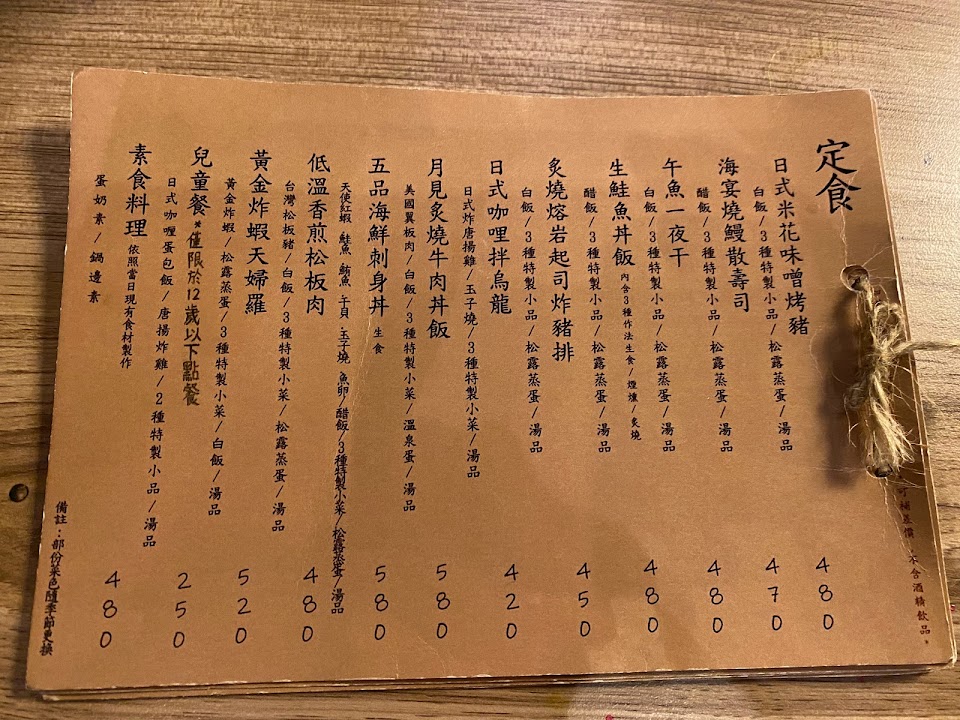 定食
日式米花味噌烤豬
白飯/3種特製小品/松露蒸蛋/湯品
480
海宴燒鰻散壽司
醋飯/3種特製小品/松露蒸蛋/湯品
470
午魚一夜干
白飯/3種特製小品/松露蒸蛋/湯品
480
生鮭魚丼飯 內含3種作法生食/煙燻/炙燒
醋飯/3種特製小品/松露蒸蛋/湯品
480
炙燒熔岩起司炸豬排
白飯/3種特製小品/松露蒸蛋/湯品
450
日式咖哩拌烏龍
日式炸唐揚雞/玉子燒/3種特製小菜/湯品
420
月見炙燒牛肉丼飯
美國翼板肉/白飯/3種特製小菜/溫泉蛋/湯品
580
五品海鮮刺身丼 生食
天使紅蝦.鮭魚.鮪魚.干貝.玉子燒.魚卵/醋飯/3種特製小菜/松露蒸蛋/湯品
580
低溫香煎松板肉
台灣松板豬/白飯/3種特製小菜/松露蒸蛋/湯品
480
黃金炸蝦天婦羅
黃金炸蝦/松露蒸蛋/3種特製小菜/白飯/湯品
520
兒童餐*僅限於12歲以下點餐
日式咖哩蛋包飯/唐揚炸雞/2種特製小品/湯品
250
素食料理 依照當日現有食材製作
蛋奶素/鍋邊素
480
備註：部份菜色隨季節更換
可補差價，不含酒精飲品。